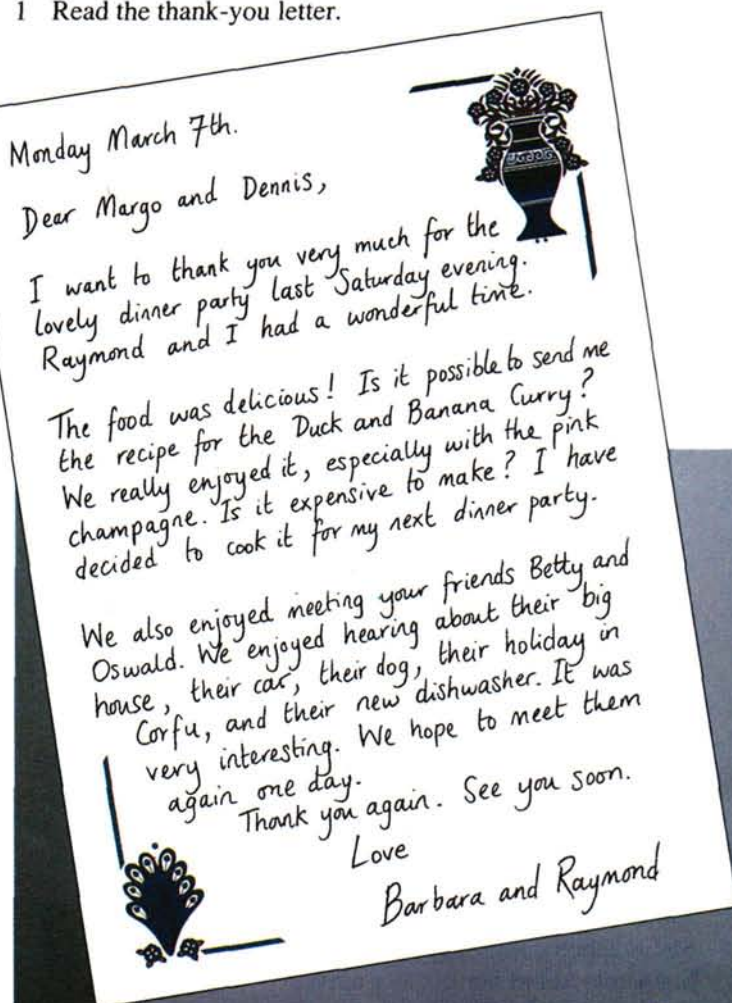 1 Read the thank-you letter.
Monday March 7th.
Dear Margo and Dennis,
I want to thank you very much for the
lovely dinner party last Saturday evening.
Raymond and I had a wonderful time.
The food was delicious! Is it possible to send me
the recipe for the Duck and Banana Curry?
We really enjoyed it, especially with the pink
champagne. Is it expensive to make? I have
decided to cook it for my next dinner party.
We also enjoyed meeting your friends Betty and
Oswald. We enjoyed hearing about their big
house, their car, their dog, their holiday in
Corfu, and their new dishwasher. It was
very interesting. We hope to meet them
again one day.
Thank you again. See you soon.
Love
Barbara and Raymond